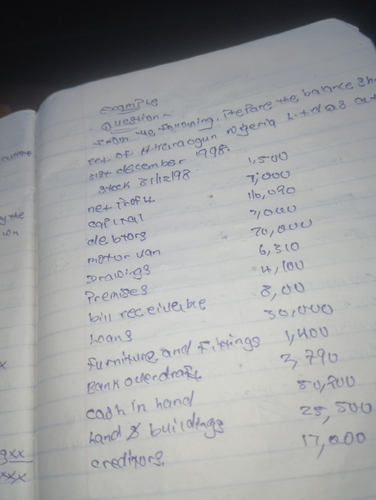 Example
Question -
From the following, Prepare the balance sh
eet of Nigeria Ltd as at
31st december 1998.
Stock 31/12/98 1,500
net profit 7,000
capital 16,090
debtors 7,000
motor van 20,000
Drawings 6,310
Premises 4,100
bill receivable 8,00
Loans 30,000
Furniture and Fittings 1,400
Bank overdraft 3,790
cash in hand 50,900
Land & buildings 25,500
creditors 17,000
xx
xxx